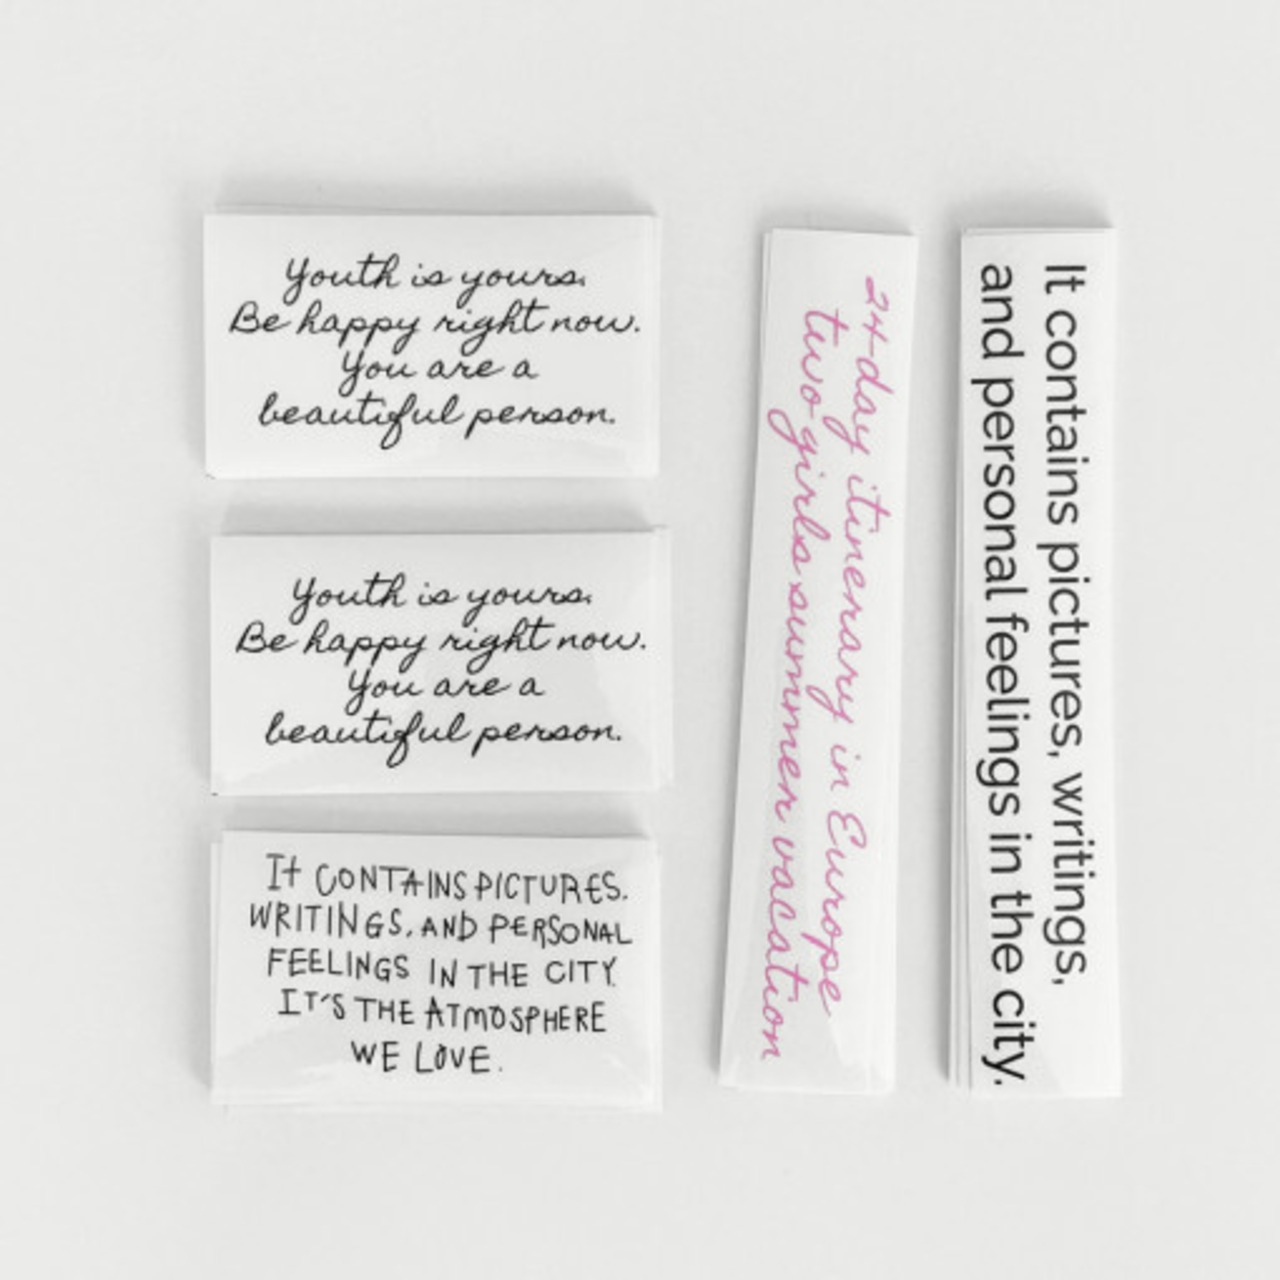 Youth is yours.
Be happy right now.
You are a
beautiful person.
Youth is yours.
Be happy right now.
You are a
beautiful person.
It CONTAINS PICTURES.
WRITINGS, AND PERSONAL
FEELINGS IN THE CITY.
IT'S THE ATMOSPHERE
WE LOVE.
24-day itinerary in Europe
two girls summer vacation
It contains pictures, writings,
and personal feelings in the city.